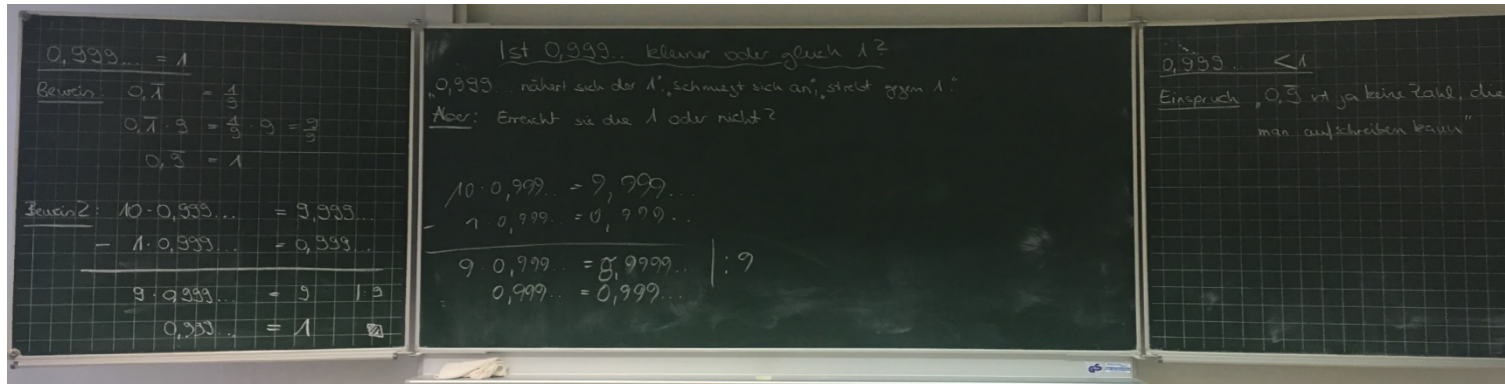 0,999... = 1
Beweis: 0,1̅ = 1/9
0,1̅ · 9 = 1/9 · 9 = 9/9
0,9̅ = 1
Beweis 2: 10 · 0,999... = 9,999...
- 1 · 0,999... = 0,999...
9 · 0,999... = 9 | : 9
0,999... = 1
Ist 0,999... kleiner oder gleich 1?
„0,999... nähert sich der 1“, „schmiegt sich an“, „strebt gegen 1“.
Aber: Erreicht sie die 1 oder nicht?
10 · 0,999... = 9,999...
- 1 · 0,999... = 0,999...
9 · 0,999... = 8,9999... | : 9
= 0,999... = 0,999...
0,999... < 1
Einspruch „0,9̅ ist ja keine Zahl, die
man aufschreiben kann“
GS